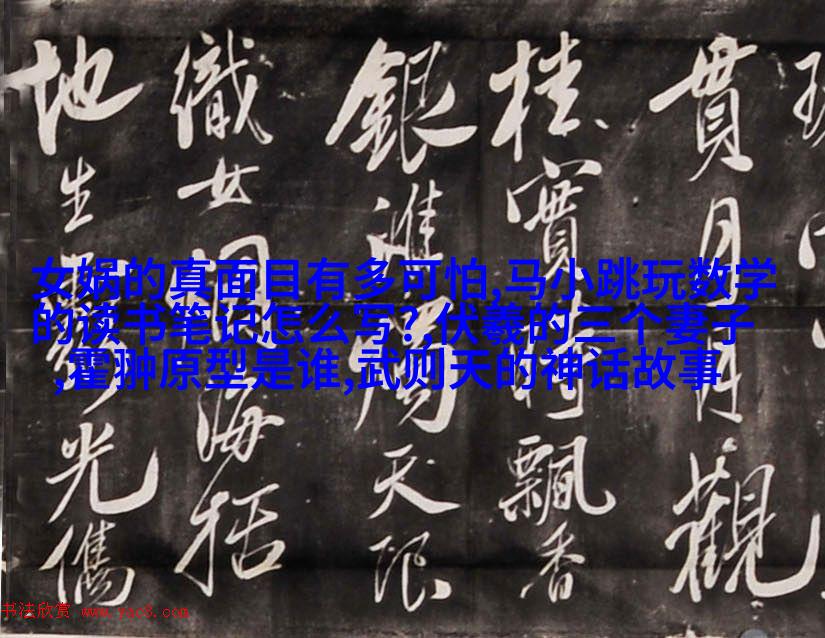 女娲的真面目有多可怕,马小跳玩数学
的读书笔记怎么写?,伏羲的三个妻子
,霍翀原型是谁,武则天的神话故事
貫月月觀
實飄香
銀周天限
織女海括
地生光儁
书法欣赏 www.yac8.com